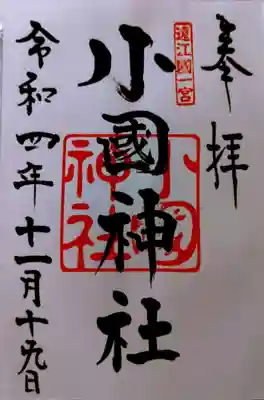 奉拝
遠江國一宮
小國神社
小國神社
令和四年十一月十九日